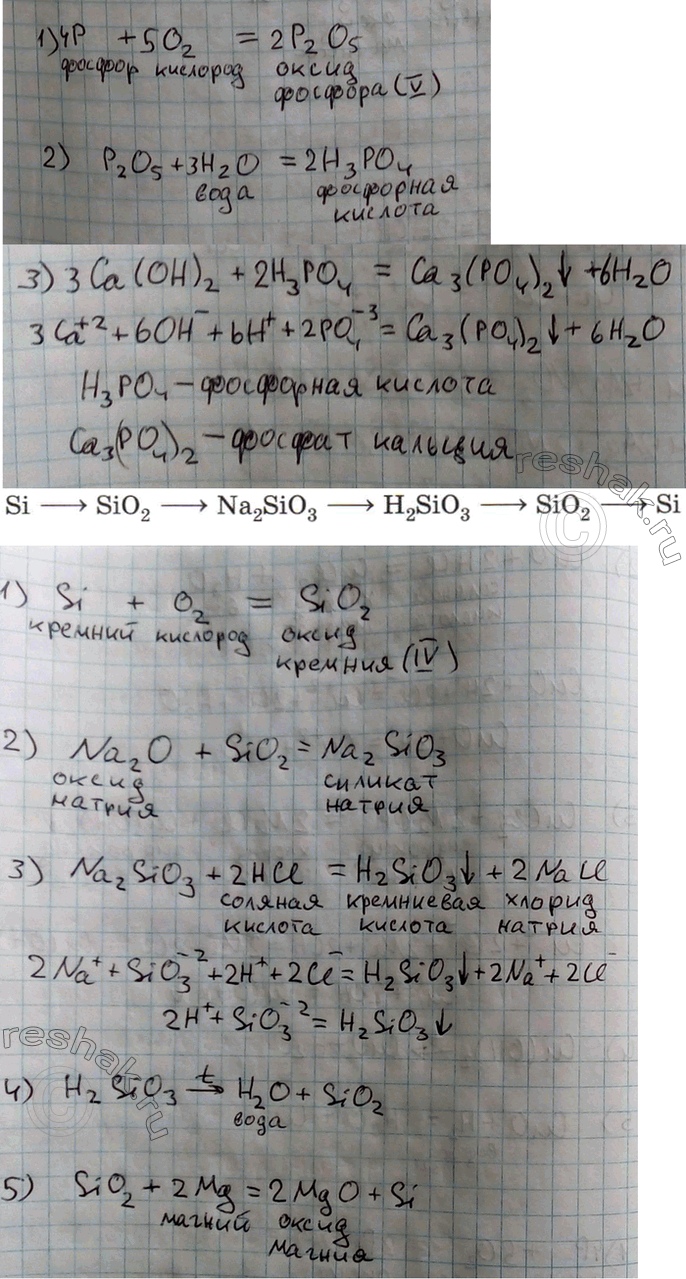 1) 4P + 5O₂ = 2P₂O₅
фосфор кислород оксид
фосфора (V)
2) P₂O₅ + 3H₂O = 2H₃PO₄
вода фосфорная
кислота
3) 3Ca(OH)₂ + 2H₃PO₄ = Ca₃(PO₄)₂↓ + 6H₂O
3Ca⁺² + 6OH⁻ + 6H⁺ + 2PO₄⁻³ = Ca₃(PO₄)₂↓ + 6H₂O
H₃PO₄ – фосфорная кислота
Ca₃(PO₄)₂ – фосфат кальция
Si → SiO₂ → Na₂SiO₃ → H₂SiO₃ → SiO₂ → Si
1) Si + O₂ = SiO₂
кремний кислород оксид
кремния (IV)
2) Na₂O + SiO₂ = Na₂SiO₃
оксид силикат
натрия натрия
3) Na₂SiO₃ + 2HCl = H₂SiO₃↓ + 2NaCl
соляная кремниевая хлорид
кислота кислота натрия
2Na⁺ + SiO₃⁻² + 2H⁺ + 2Cl⁻ = H₂SiO₃↓ + 2Na⁺ + 2Cl⁻
2H⁺ + SiO₃⁻² = H₂SiO₃↓
4) H₂SiO₃ →t H₂O + SiO₂
вода
5) SiO₂ + 2Mg = 2MgO + Si
магний оксид
магния
reshak.ru
©